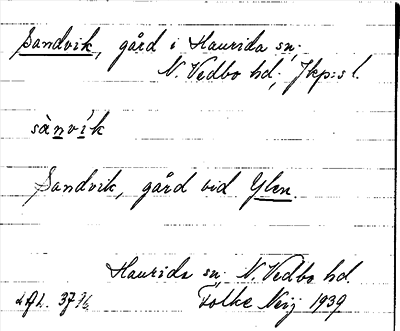 Sandvik, gård i Haurida sn;
N. Vedbo hd; Jkp:s l.
sànvík
Sandvik, gård vid Ylen.
Haurida sn. N. Vedbo hd.
Folke 1939